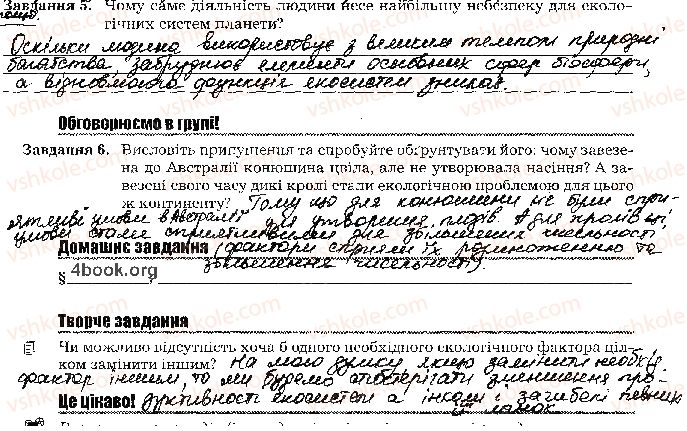 Завдання 5. Чому саме діяльність людини несе найбільшу небезпеку для еколо-
гічних систем планети?
Оскільки людина використовує з великим темпом природні
багатства, забруднює елементи основних сфер біосфери,
а відновлююча функція екосистем знижав
Обговорюємо в групі!
Завдання 6. Висловіть припущення та спробуйте обґрунтувати його: чому завезе-
на до Австралії конюшина цвіла, але не утворювала насіння? А за-
везені свого часу дикі кролі стали екологічною проблемою для цього
ж континенту? Тому що для конюшини не були спри-
ятливі умови в Австралії для утворення плодів. А для кролів ці
умови стали сприятливими для збільшення чисельності
Домашнє завдання (фактори сприяли їх розмноженню та
§ 4book.org збільшення чисельності).
Творче завдання
Чи можливо відсутність хоча б одного необхідного екологічного фактора ціл-
ком замінити іншим? На мою думку якщо замінити необхід
фактор іншим, то ми будемо спостерігати зменшення про-
Це цікаво! дуктивності екосистем а інколи і загибелі певних
ланок